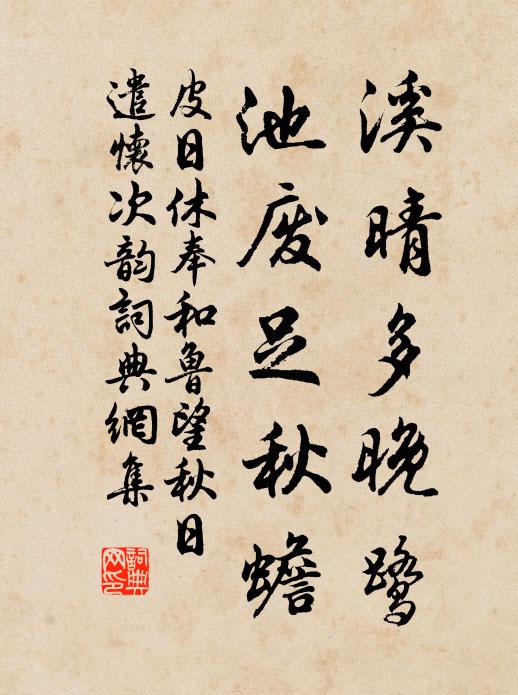 溪晴多晚鷺
池废足秋蟾
皮日休奉和魯望秋日
遣懷次韵詞典網集
詞典
网印